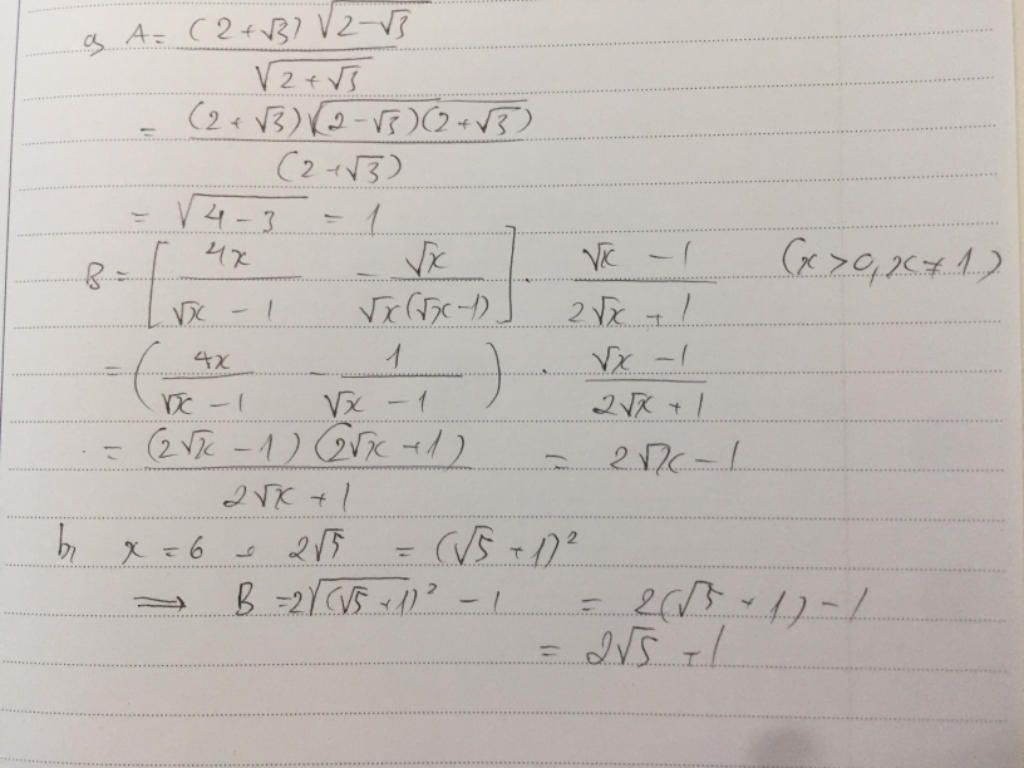 a, A = (2 + √3) √(2 - √3) / √(2 + √3)
= (2 + √3) √((2 - √3)(2 + √3)) / (2 + √3)
= √(4 - 3) = 1
B = [4x / (√x - 1) - √x / (√x(√x - 1))] . (√x - 1) / (2√x + 1) (x > 0, x ≠ 1)
= (4x / (√x - 1) - 1 / (√x - 1)) . (√x - 1) / (2√x + 1)
= (2√x - 1)(2√x + 1) / (2√x + 1) = 2√x - 1
b, x = 6 - 2√5 = (√5 + 1)²
⟹ B = 2√(√5 + 1)² - 1 = 2(√5 + 1) - 1
= 2√5 + 1